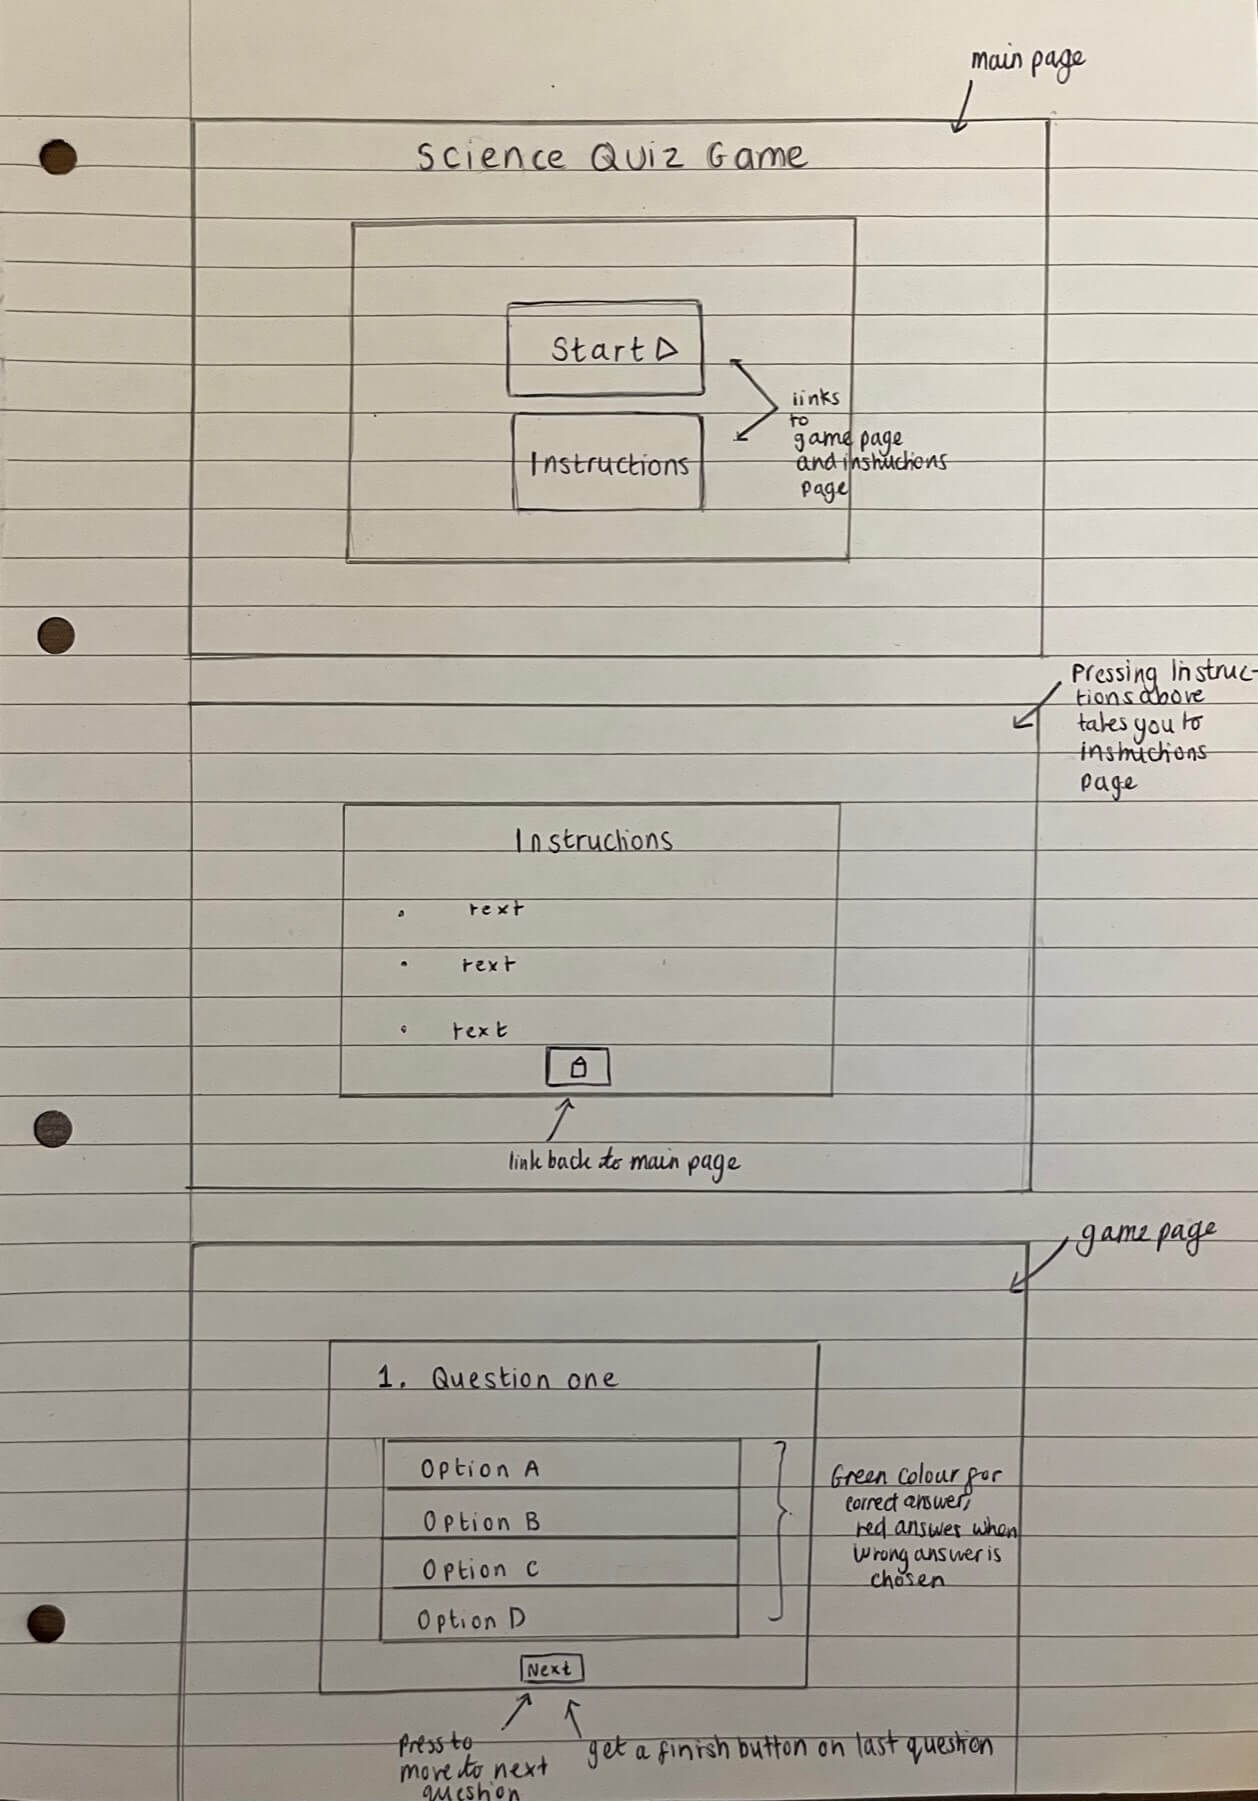 main page
Science Quiz Game
Start
Instructions
links
to
game page
and instructions
page
Pressing Instruc-
tions above
takes you to
instructions
page
Instructions
• text
• text
• text
link back to main page
game page
1. Question one
Option A
Option B
Option C
Option D
Green colour for
correct answer,
red answer when
wrong answer is
chosen
Next
press to
move to next
question
get a finish button on last question